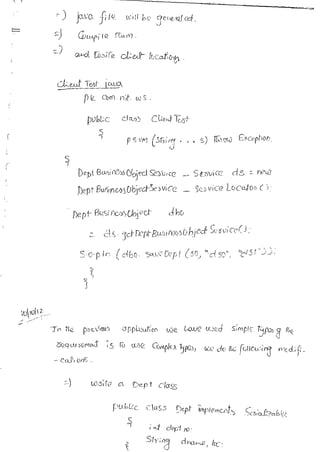 =) java file will be generated.
=) Compile them.
=) and write client location.
Client Test java
pk com.nit.ws.
public class Client Test
{
psvm (String ... s) throw Exception.
{
Dept Business Object Service _ Service ds = new
Dept Business Object Service _ Service Locator();
Dept Business Object dbo
= ds. get Dept Business Object Service();
S.o.pln (dbo. save Dept (50, "d50",
}
}
In the previous application we have used simple Types if the
requirement is to use Complex Types, we do the following modifi-
-cations.
=) write a Dept class
public class Dept implements Serializable
{
int dept no;
String dname, loc;